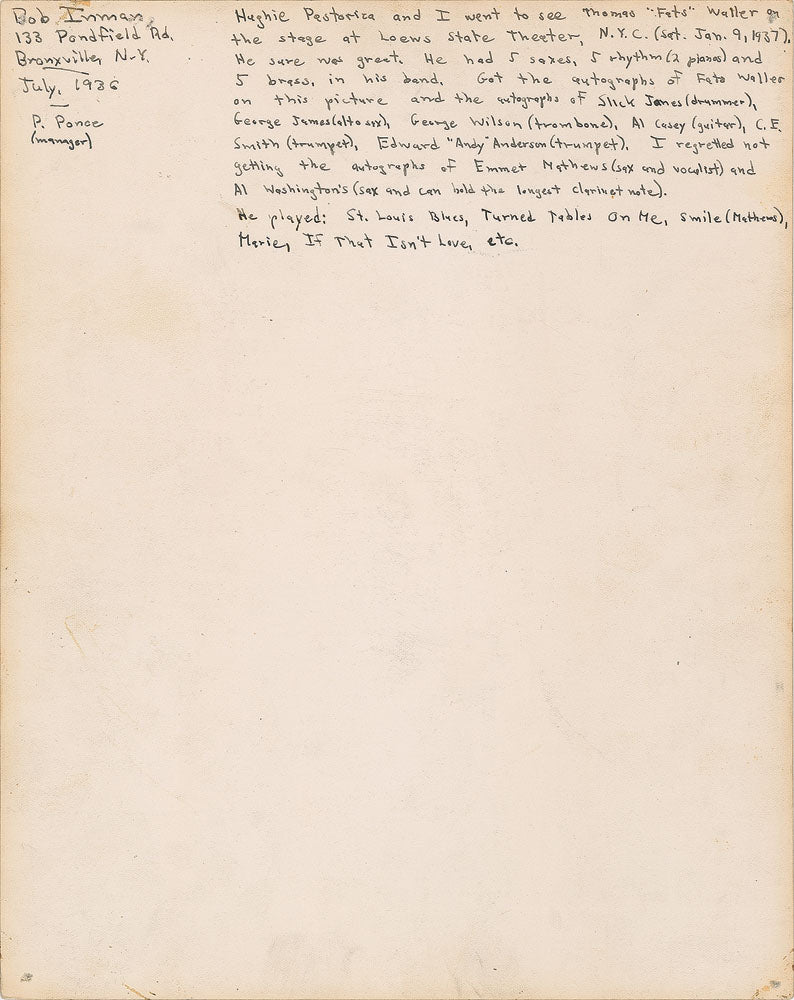 Bob Inman
133 Pondfield Rd.
Bronxville, N.Y.
July, 1936
P. Ponce
(manager)
Hughie Pastorica and I went to see Thomas "Fats" Waller on
the stage at Loews State Theater, N.Y.C. (Sat. Jan. 9, 1937).
He sure was great. He had 5 saxes, 5 rhythm (2 pianos) and
5 brass, in his band. Got the autographs of Fats Waller
on this picture and the autographs of Slick Jones (drummer),
George James (alto sax), George Wilson (trombone), Al Casey (guitar), C.E.
Smith (trumpet), Edward "Andy" Anderson (trumpet). I regretted not
getting the autographs of Emmet Mathews (sax and vocalist) and
Al Washington's (sax and can hold the longest clarinet note).
He played: St. Louis Blues, Turned Tables On Me, Smile (Mathews),
Marie, If That Isn't Love, etc.